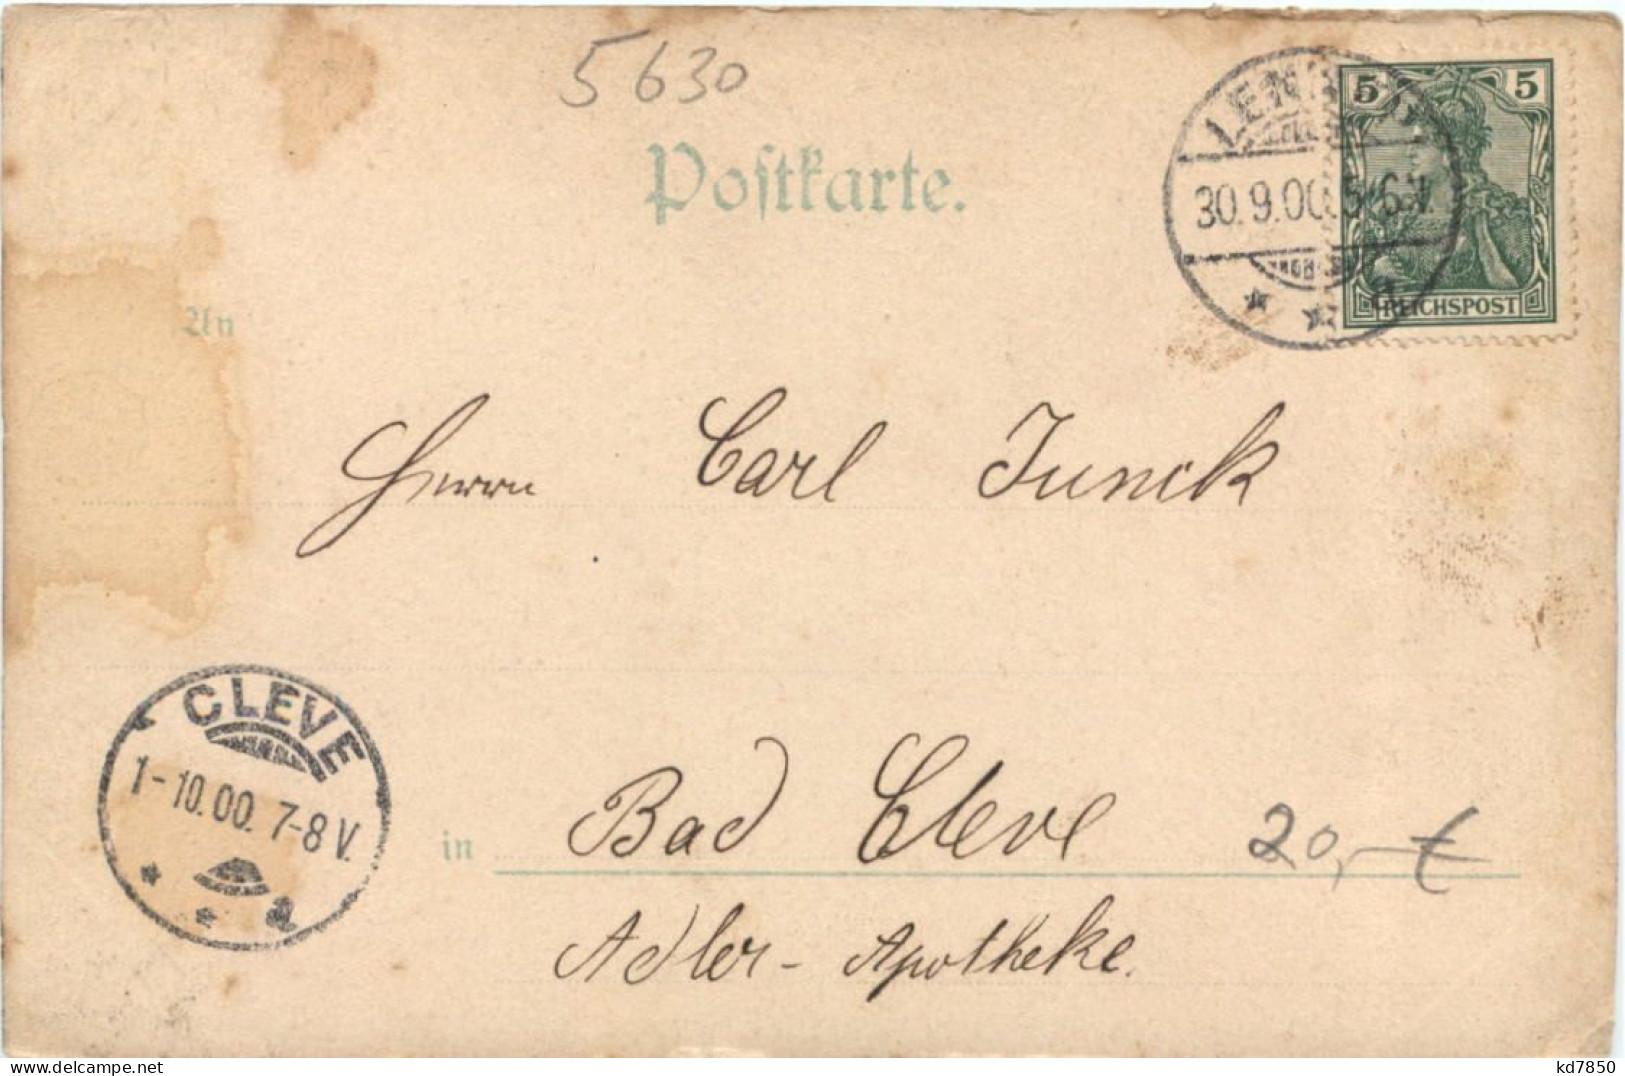 5630
Postkarte.
30.9.00. 5-6V.
5 5
REICHSPOST
An
Herrn Carl Junck
CLEVE
1-10.00. 7-8V.
a
in Bad Cleve
20,-€
Adler-Apotheke.
www.delcampe.net
kd7850